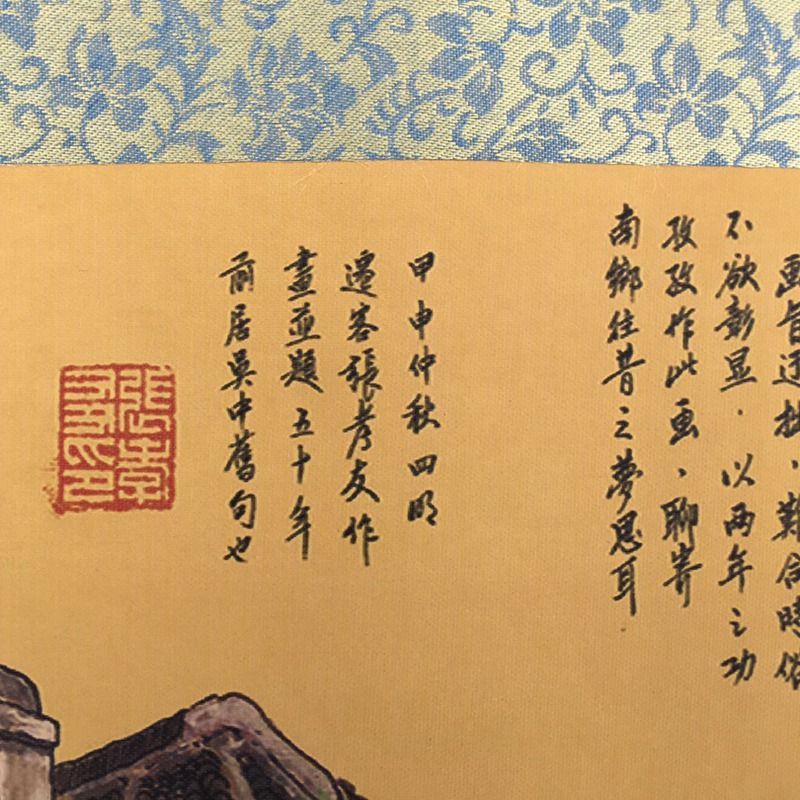 画旨迂拙，難合時俗
不欲彰显．以两年之功
孜孜作此画、聊寄
南鄉往昔之夢思耳
甲申仲秋四明
遷客張孝友作
畫並題 五十年
前居吳中舊句也
張孝友印